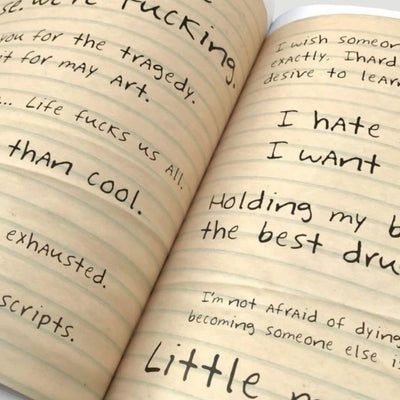 se. we're fucking.
you for the tragedy.
it for may art.
... Life fucks us all.
than cool.
exhausted.
scripts.
I wish someon
exactly. Ihard
desive to lear
I hate
I want
Holding my b
the best dru
I'm not afraid of dying
becoming someone else i
Little